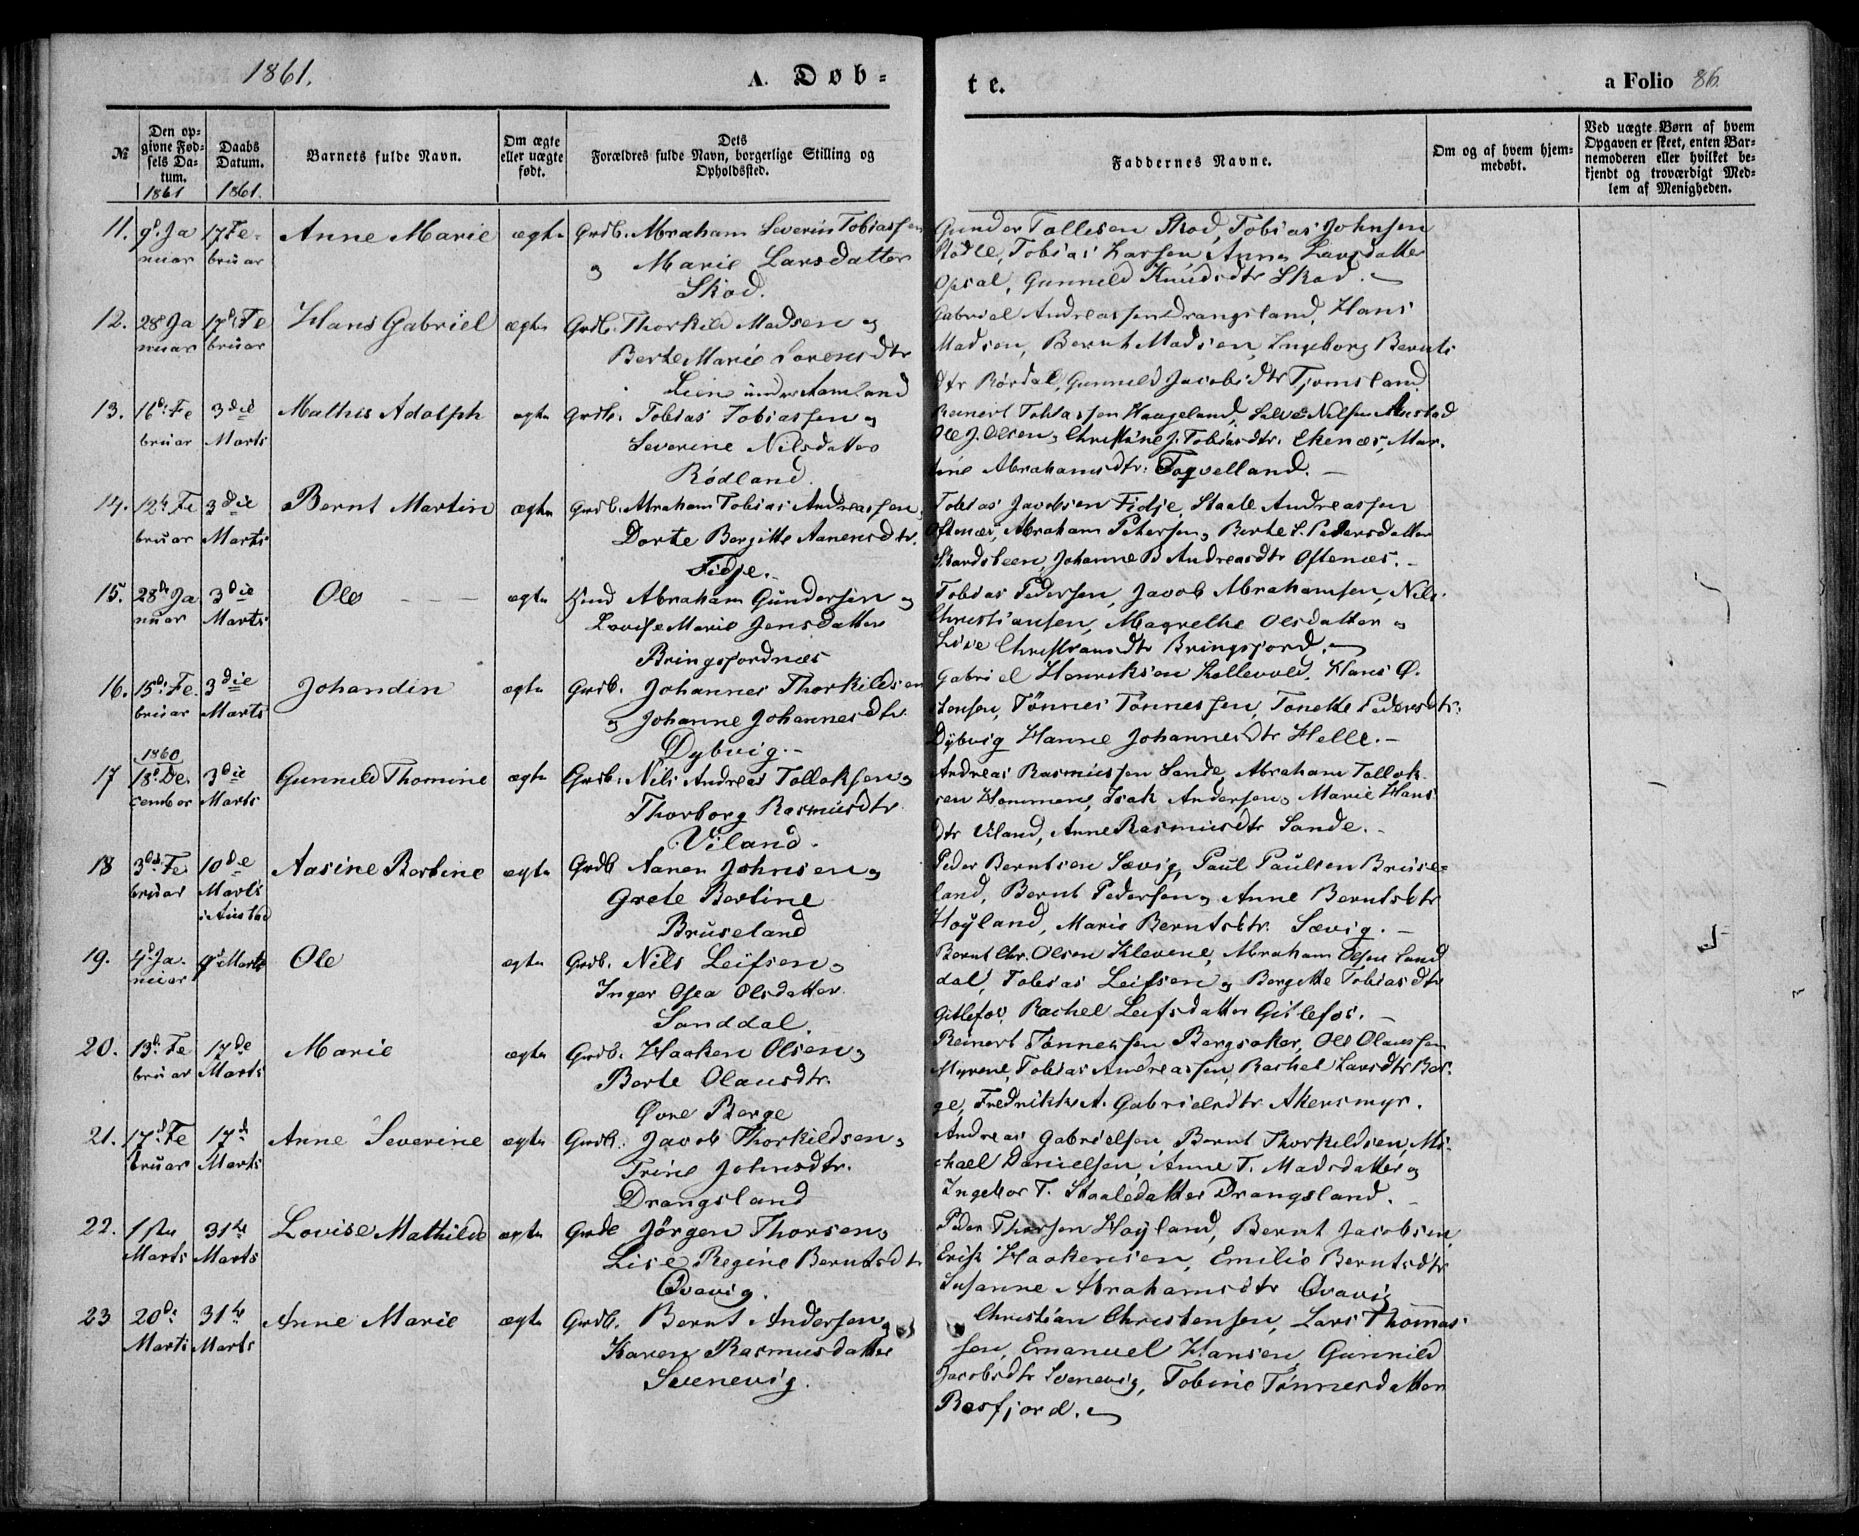 1861.
A. Døb=
te.
a Folio 86.
№
Den op=
givne Fød=
sels Da=
tum.
1861
Daabs
Datum.
1861.
Barnets fulde Navn.
Om ægte
eller uægte
født.
Dets
Forældres fulde Navn, borgerlige Stilling og
Opholdssted.
Faddernes Navne.
Om og af hvem hjem=
medøbt.
Ved uægte Børn af hvem
Opgaven er skeet, enten Bar=
nemoderen eller hvilket be=
kjendt og troværdigt Med=
lem af Menigheden.
11. 9d. Ja 17 Fe- Anne Marie ægte Grdb. Abraham Severin Tobiassen
nuar bruar og Marie Larsdatter
Skod.
Gunder Tollisen Skod, Tobias Johnsen
Rødle, Tobias Larsen, Anne Larsdatter
Opsal, Gunnild Knudsdtr Skod.
12. 28 Ja 17d. Fe Hans Gabriel ægte Grdb. Thorkild Madsen og
nuar bruar Berte Marie Sorensdtr
Lien under Aamland
Gabriel Andreassen Drangsland, Hans
Madsen, Bernt Madsen, Ingeborg Bernts
dtr Rørdal, Gunnild Jacobsdtr Tjomsland.
13. 16d. Fe 3die Mathis Adolph ægte Grdb. Tobias Tobiassen og
bruar Marts Severine Nilsdatter
Rødland.
Reinert Tobiassen Haageland, Salve Nilsen Austad
Ole J. Olsen, Christine J. Tobiasdtr. Ekenæs, Mar-
tine Abrahamsdtr. Fogvelland.
14. 12te Fe 3die Bernt Martin ægte Grdb. Abraham Tobias Andreassen,
bruar Marts Dorte Bergitte Aanensdtr.
Fidje.
Tobias Jacobsen Fidje, Staale Andreassen
Oftenæs, Abraham Petersen, Berte S. Pedersdatter
Skardsteen, Johanne B Andreasdtr Oftenæs.
15. 28de Ja 3die Ole ægte Hmd Abraham Gundersen og
nuar Marts Lovise Marie Jensdatter
Bringsfordnæs
Tobias Pedersen, Jacob Abrahamsen, Nils
Christiansen, Magrethe Olsdatter og
Live Christiansdtr Bringsfjord.
16. 15d. Fe 3die Johandin ægte Grdb. Johannes Thorkildsen
bruar Marts og Johanne Johannesdtr.
Dybvig.
Gabriel Henriksen Kollevold, Hans Ø.
Jonsen, Tønnes Tønnessen, Tonette Pedersdtr.
Dybvig Hanne Johannesdtr Helle.
1860
17 18d. De 3die Gunnild Thomine ægte Grdb. Nils Andreas Tollaksen og
cember Marts Thorborg Rasmusdtr.
Viland.
Andreas Rasmussen Sande, Abraham Tollak-
sen Hommen, Isak Andersen, Marie Hans
dtr Viland, Anne Rasmusdtr Sande.
18 3de. Fe 10de Aasine Bertine ægte Grdb Aanen Johnsen og
bruar Marts Grete Bertine
i Austad Bruseland
Peder Berntsen Sævig, Paul Paulsen Bruse-
land, Bernt Pedersen, Anne Berntsdtr
Høyland, Marie Berntsdtr. Sævig.
19. 4d. Ja 9d. Marts Ole ægte Grdb. Nils Leifsen og
nuar Inger Osea Olsdatter.
Sanddal.
Bernt Chr. Olsen Klevene, Abraham Olsen Sand
dal, Tobias Leifsen og Bergitte Tobiasdtr
Gitlefos, Rachel Leifsdatter Gitlefos.
20. 13d. Fe 17de Marie ægte Grdb. Haaken Olsen og
bruar Marts Berte Olausdtr.
Øvre Berge
Reinert Tønnessen Bergsaker, Ole Olaussen
Myrene, Tobias Andreassen, Rachel Larsdtr Ber-
ge, Fredrikke A. Gabrielsdtr Akersmyr.
21. 17d. Fe 17d Anne Severine ægte Grdb. Jacob Thorkildsen og
bruar Marts Trine Johnsdtr.
Drangsland
Andreas Gabrielsen, Bernt Thorkildsen, Mi-
chael Danielsen, Anne T. Madsdatter og
Ingebor T. Staalesdatter Drangsland.
22. 1ste 31te Lovise Mathilde ægte Grdb Jörgen Thorsen og
Marts Marts Lise Regine Berntsdtr
Qvavig.
Peder Thorsen Høyland, Bernt Jacobsen,
Erik Haakensen, Emilie Berntsdtr
Susanne Abrahamsdtr Qvavig
23 20d. 31te Anne Marie ægte Grdb. Bernt Andersen og
Marts Marts Karen Rasmusdatter
Svenevig.
Christian Christensen, Lars Thomas-
sen, Emanuel Hansen, Gunnild
Jacobsdtr Svenevig, Tobine Tønnesdatter
Rosfjord.